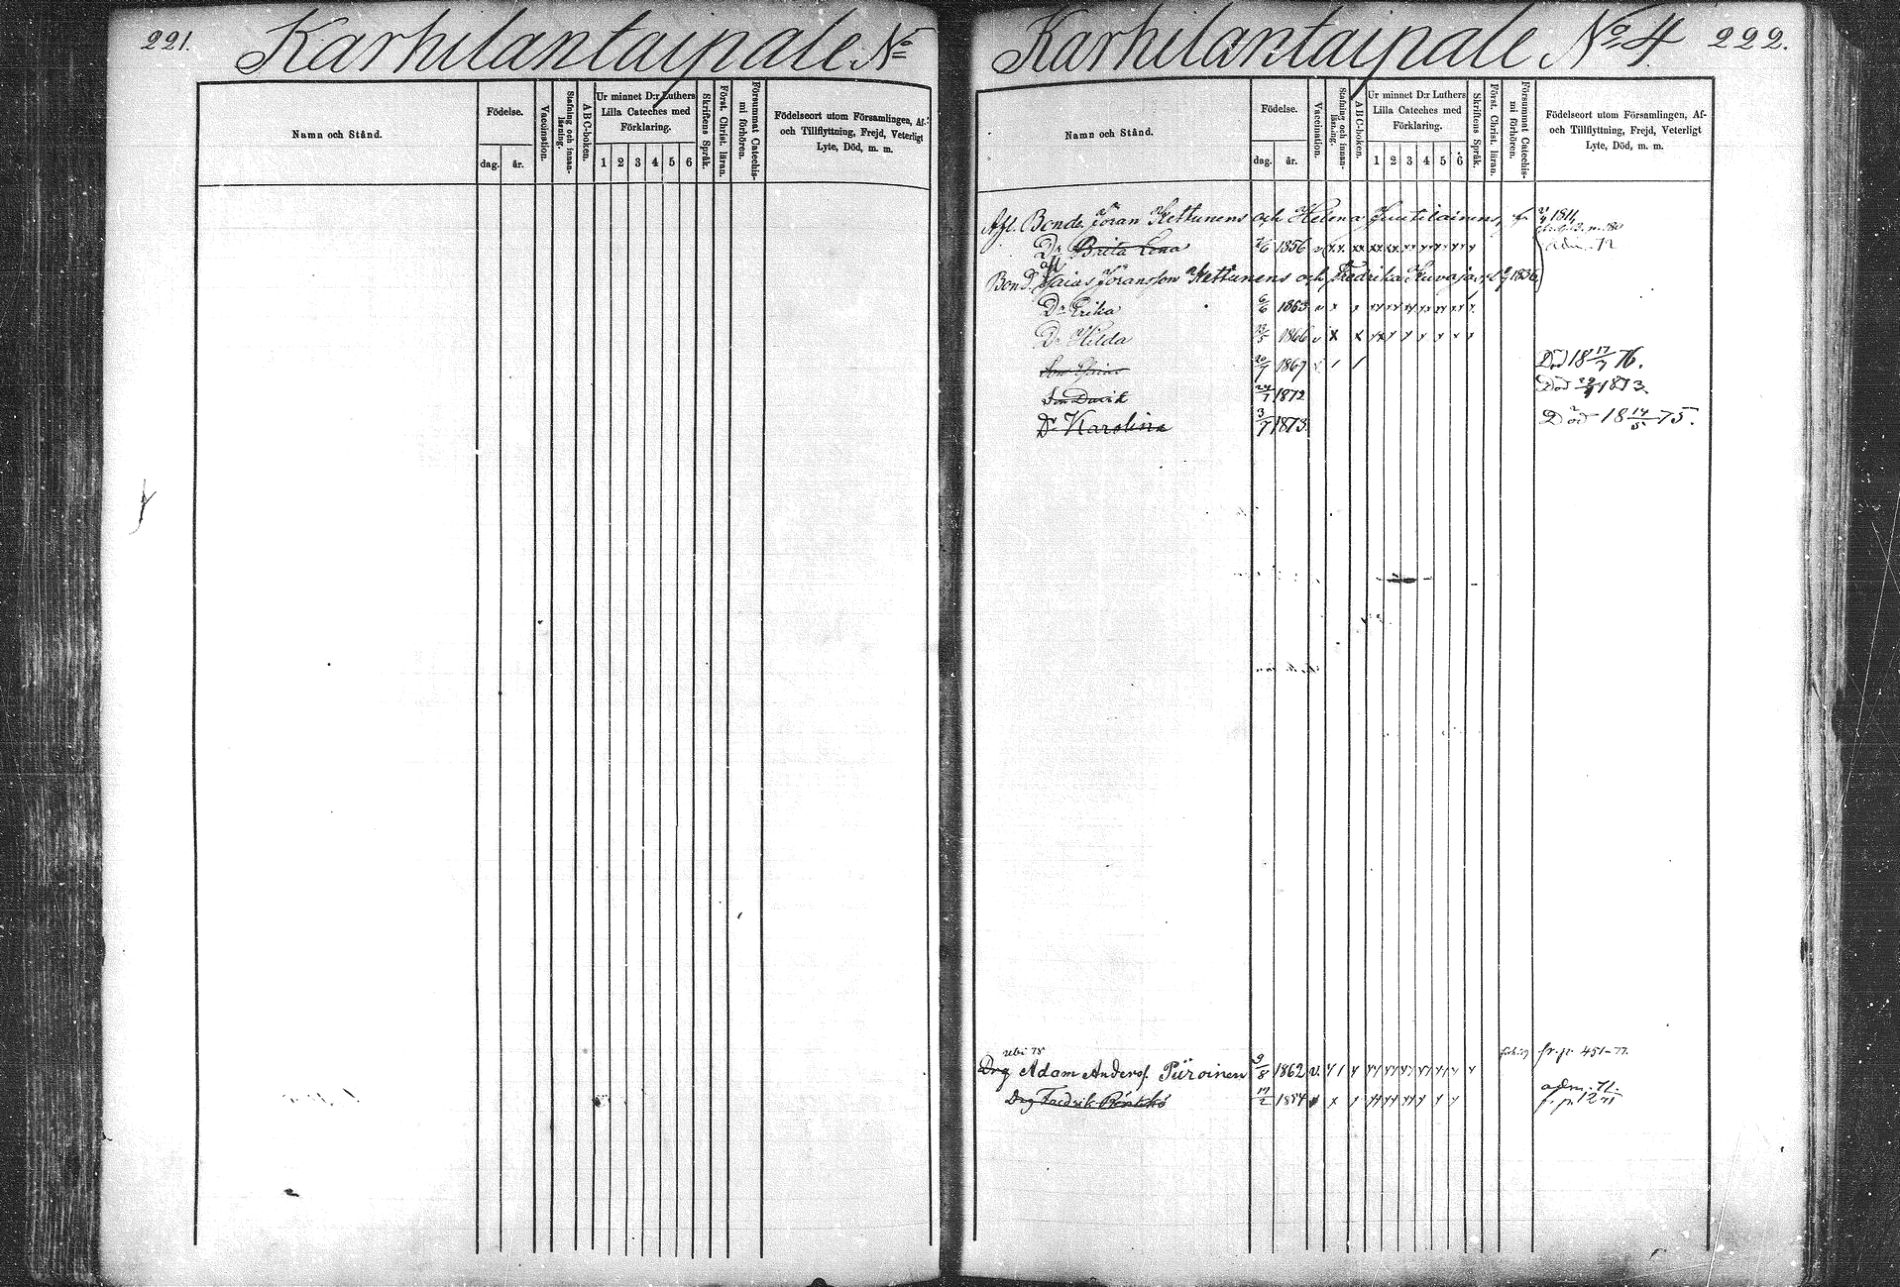 221. Karhilantaipale No
Namn och Stånd.
Födelse.
dag. år.
Vaccination.
Stafning och innan-läsning.
ABC-boken.
Ur minnet D:r Luthers
Lilla Cateches med
Förklaring.
1 2 3 4 5 6
Skriftens Språk.
Först. Christ. läran.
Försummat Catechis-mi förhören.
Födelseort utom Församlingen, Af-
och Tillflyttning, Frejd, Veterligt
Lyte, Död, m. m.
Karhilantaipale No 4 222.
Namn och Stånd.
Födelse.
dag. år.
Vaccination.
Stafning och innan-läsning.
ABC-boken.
Ur minnet D:r Luthers
Lilla Cateches med
Förklaring.
1 2 3 4 5 6
Skriftens Språk.
Först. Christ. läran.
Försummat Catechis-mi förhören.
Födelseort utom Församlingen, Af-
och Tillflyttning, Frejd, Veterligt
Lyte, Död, m. m.
Afl. Bonde Jöran Kettunens och Helena Juutilainens, 1811
Dr Brita Lena 1856 adm. 72
afl.
Bond. Esaias Jöransson Kettunens och Fredrika Kuvaja 1836
Dr Erika 6/6 1863
Dr Hilda 1866
20/7 1867 Död 18 17/7 76.
Son David 24/7 1872 Död 1873.
Dr Karolina 3/7 1873. Död 18 14/5 75.
ubi 78
Drg Adam Anderss. Piiroinen 9/8 1862 v. fr. p. 451-77.
Drg Fredrik 17/2 1854 adm. 71.